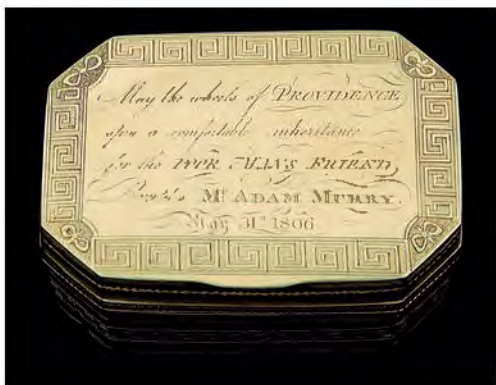 May the wheels of PROVIDENCE
open a comfortable inheritance
for the POOR MAN'S FRIEND,
Mr ADAM MURRY.
May 31st 1806